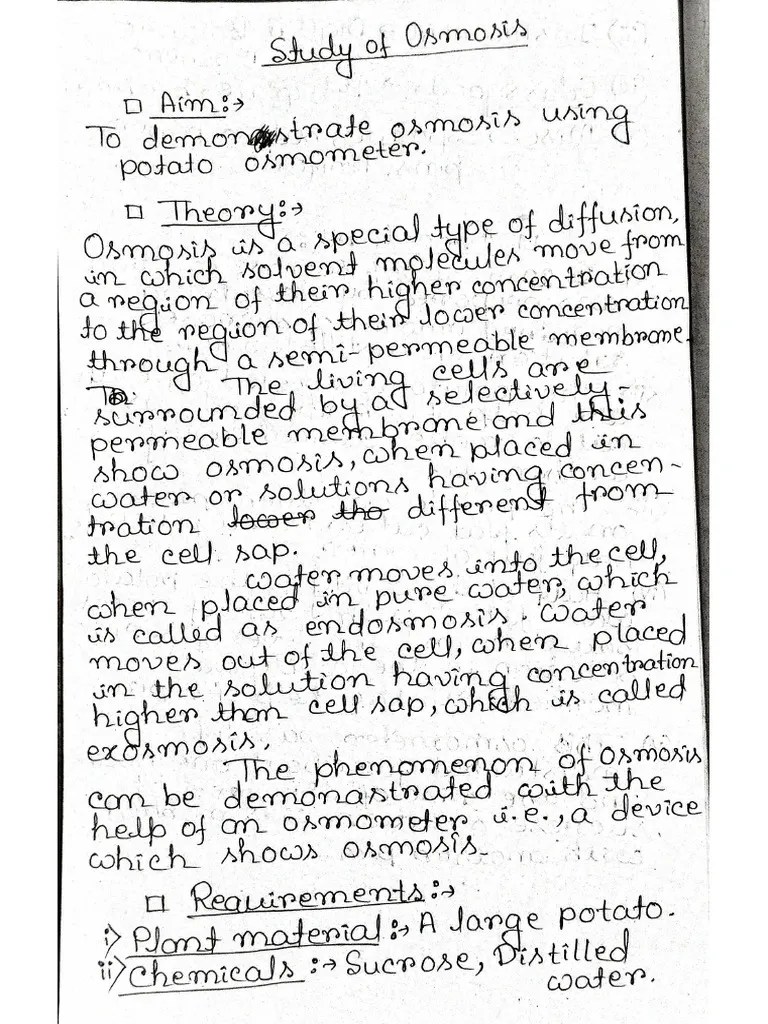 Study of Osmosis
□ Aim:→
To demonstrate osmosis using
potato osmometer.
□ Theory:→
Osmosis is a special type of diffusion,
in which solvent molecules move from
a region of their higher concentration
to the region of their lower concentration
through a semi-permeable membrane.
The living cells are
surrounded by a selectively-
permeable membrane and this
show osmosis, when placed in
water or solutions having concen-
tration lower tho different from
the cell sap.
water moves into the cell,
when placed in pure water, which
is called as endosmosis. Water
moves out of the cell, when placed
in the solution having concentration
higher than cell sap, which is called
exosmosis.
The phenomenon of osmosis
can be demonastrated with the
help of an osmometer i.e., a device
which shows osmosis.
□ Requirements:→
i) Plant material:→ A large potato.
ii) Chemicals:→ Sucrose, Distilled
water.